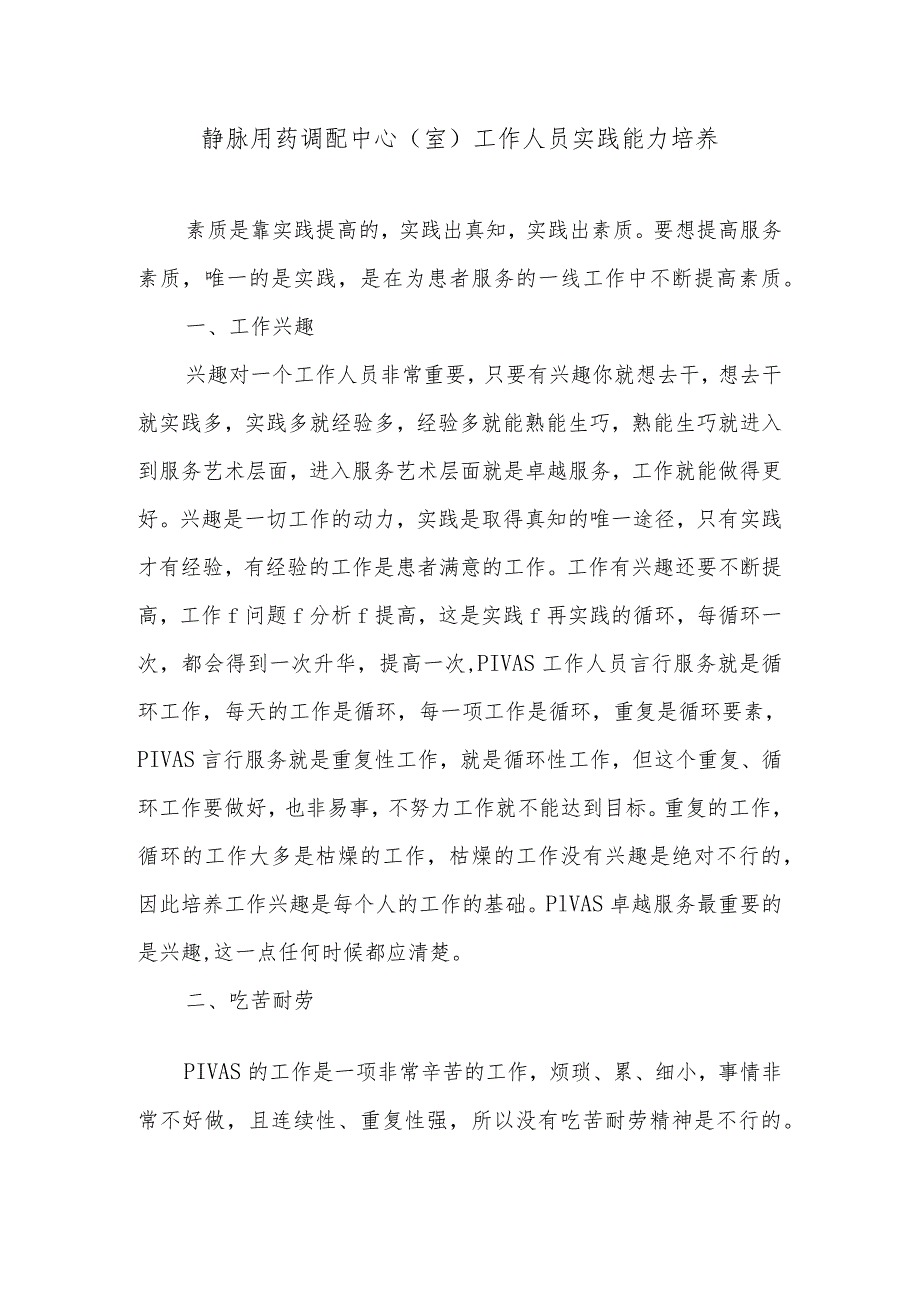 静脉用药调配中心（室）工作人员实践能力培养
素质是靠实践提高的,实践出真知,实践出素质。要想提高服务
素质，唯一的是实践，是在为患者服务的一线工作中不断提高素质。
一、工作兴趣
兴趣对一个工作人员非常重要,只要有兴趣你就想去干,想去干
就实践多，实践多就经验多，经验多就能熟能生巧，熟能生巧就进入
到服务艺术层面，进入服务艺术层面就是卓越服务，工作就能做得更
好。兴趣是一切工作的动力，实践是取得真知的唯一途径，只有实践
才有经验，有经验的工作是患者满意的工作。工作有兴趣还要不断提
高，工作f问题f分析f提高，这是实践f再实践的循环，每循环一
次，都会得到一次升华，提高一次,PIVAS工作人员言行服务就是循
环工作，每天的工作是循环，每一项工作是循环，重复是循环要素，
PIVAS言行服务就是重复性工作，就是循环性工作，但这个重复、循
环工作要做好，也非易事，不努力工作就不能达到目标。重复的工作，
循环的工作大多是枯燥的工作，枯燥的工作没有兴趣是绝对不行的，
因此培养工作兴趣是每个人的工作的基础。PlVAS卓越服务最重要的
是兴趣,这一点任何时候都应清楚。
二、吃苦耐劳
PIVAS的工作是一项非常辛苦的工作，烦琐、累、细小，事情非
常不好做，且连续性、重复性强，所以没有吃苦耐劳精神是不行的。